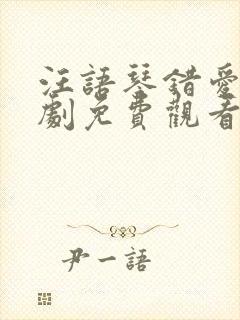 汪語琴錯愛
劇免費觀看
尹一語